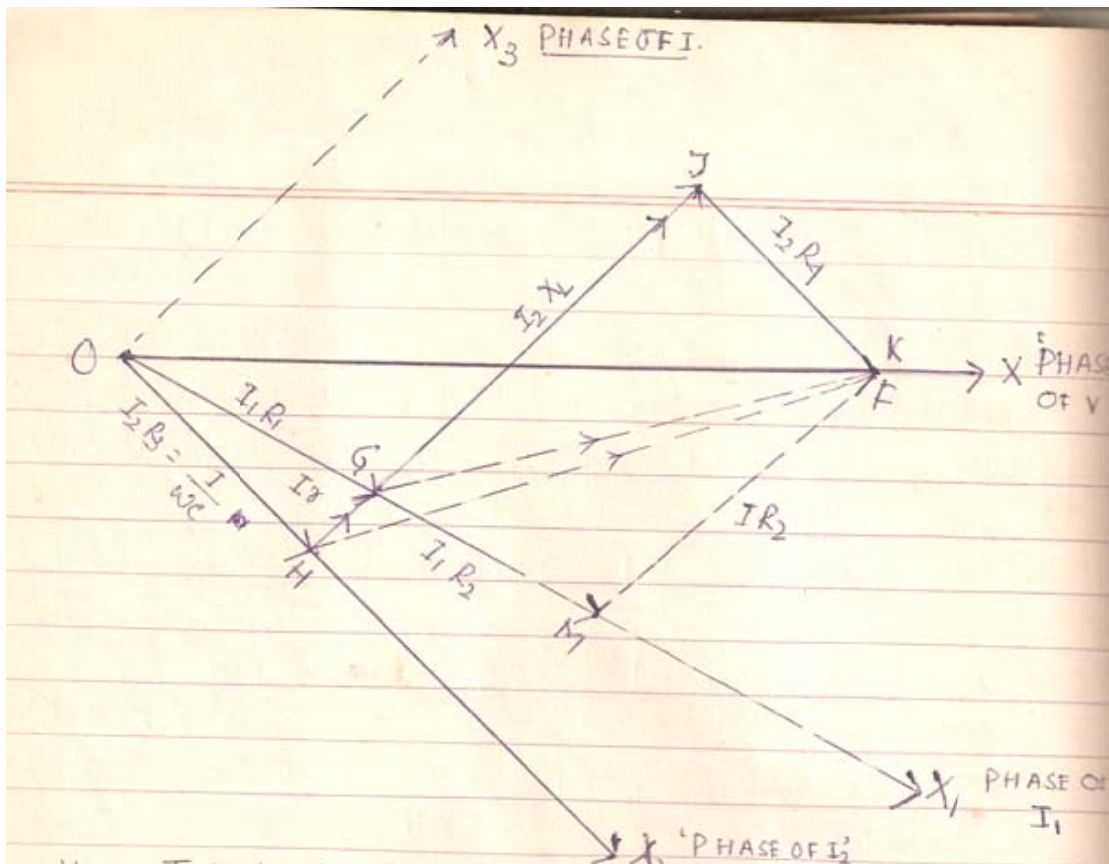 X3 PHASE OF I.
J
I2 R4
I2 XL
O
K
F
X 'PHASE
OF V
I1 R1
I2 R3 = I
ωC
G
Ir
H
I1 R2
I R2
X1 PHASE OF
I1
X2 'PHASE OF I2'